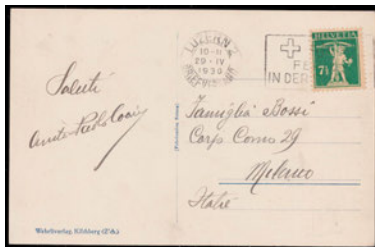 LUZERN 2
10-11
29·IV
1930
BRIEFVERSAND
FE
IN DER
HELVETIA
7½
Saluti
Famiglia Bossi
Corso Como 29
Milano
Italie
Wehrliverlag, Kilchberg (Zch.)